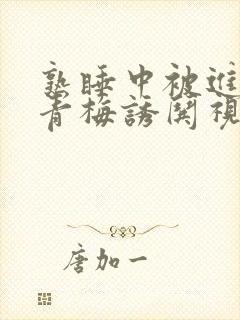 熟睡中被進
青梅誘関視
唐加一